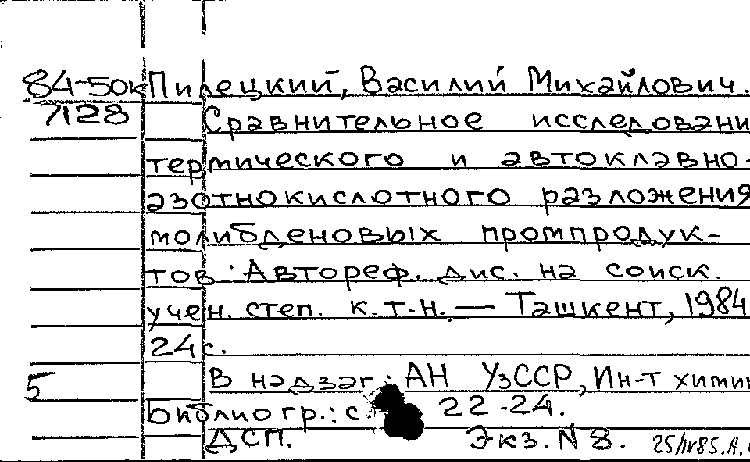 84-50к Пилецкий, Василий Михайлович.
7128 Сравнительное исследовани
термического и автоклавно-
азотнокислотного разложения
молибденовых промпродук-
тов : Автореф. дис. на соиск.
учен. степ. к.т.н. — Ташкент, 1984
24с.
5 В надзаг.: АН УзССР, Ин-т хими
Библиогр.: с. 22-24.
ДСП. Экз. N 8.